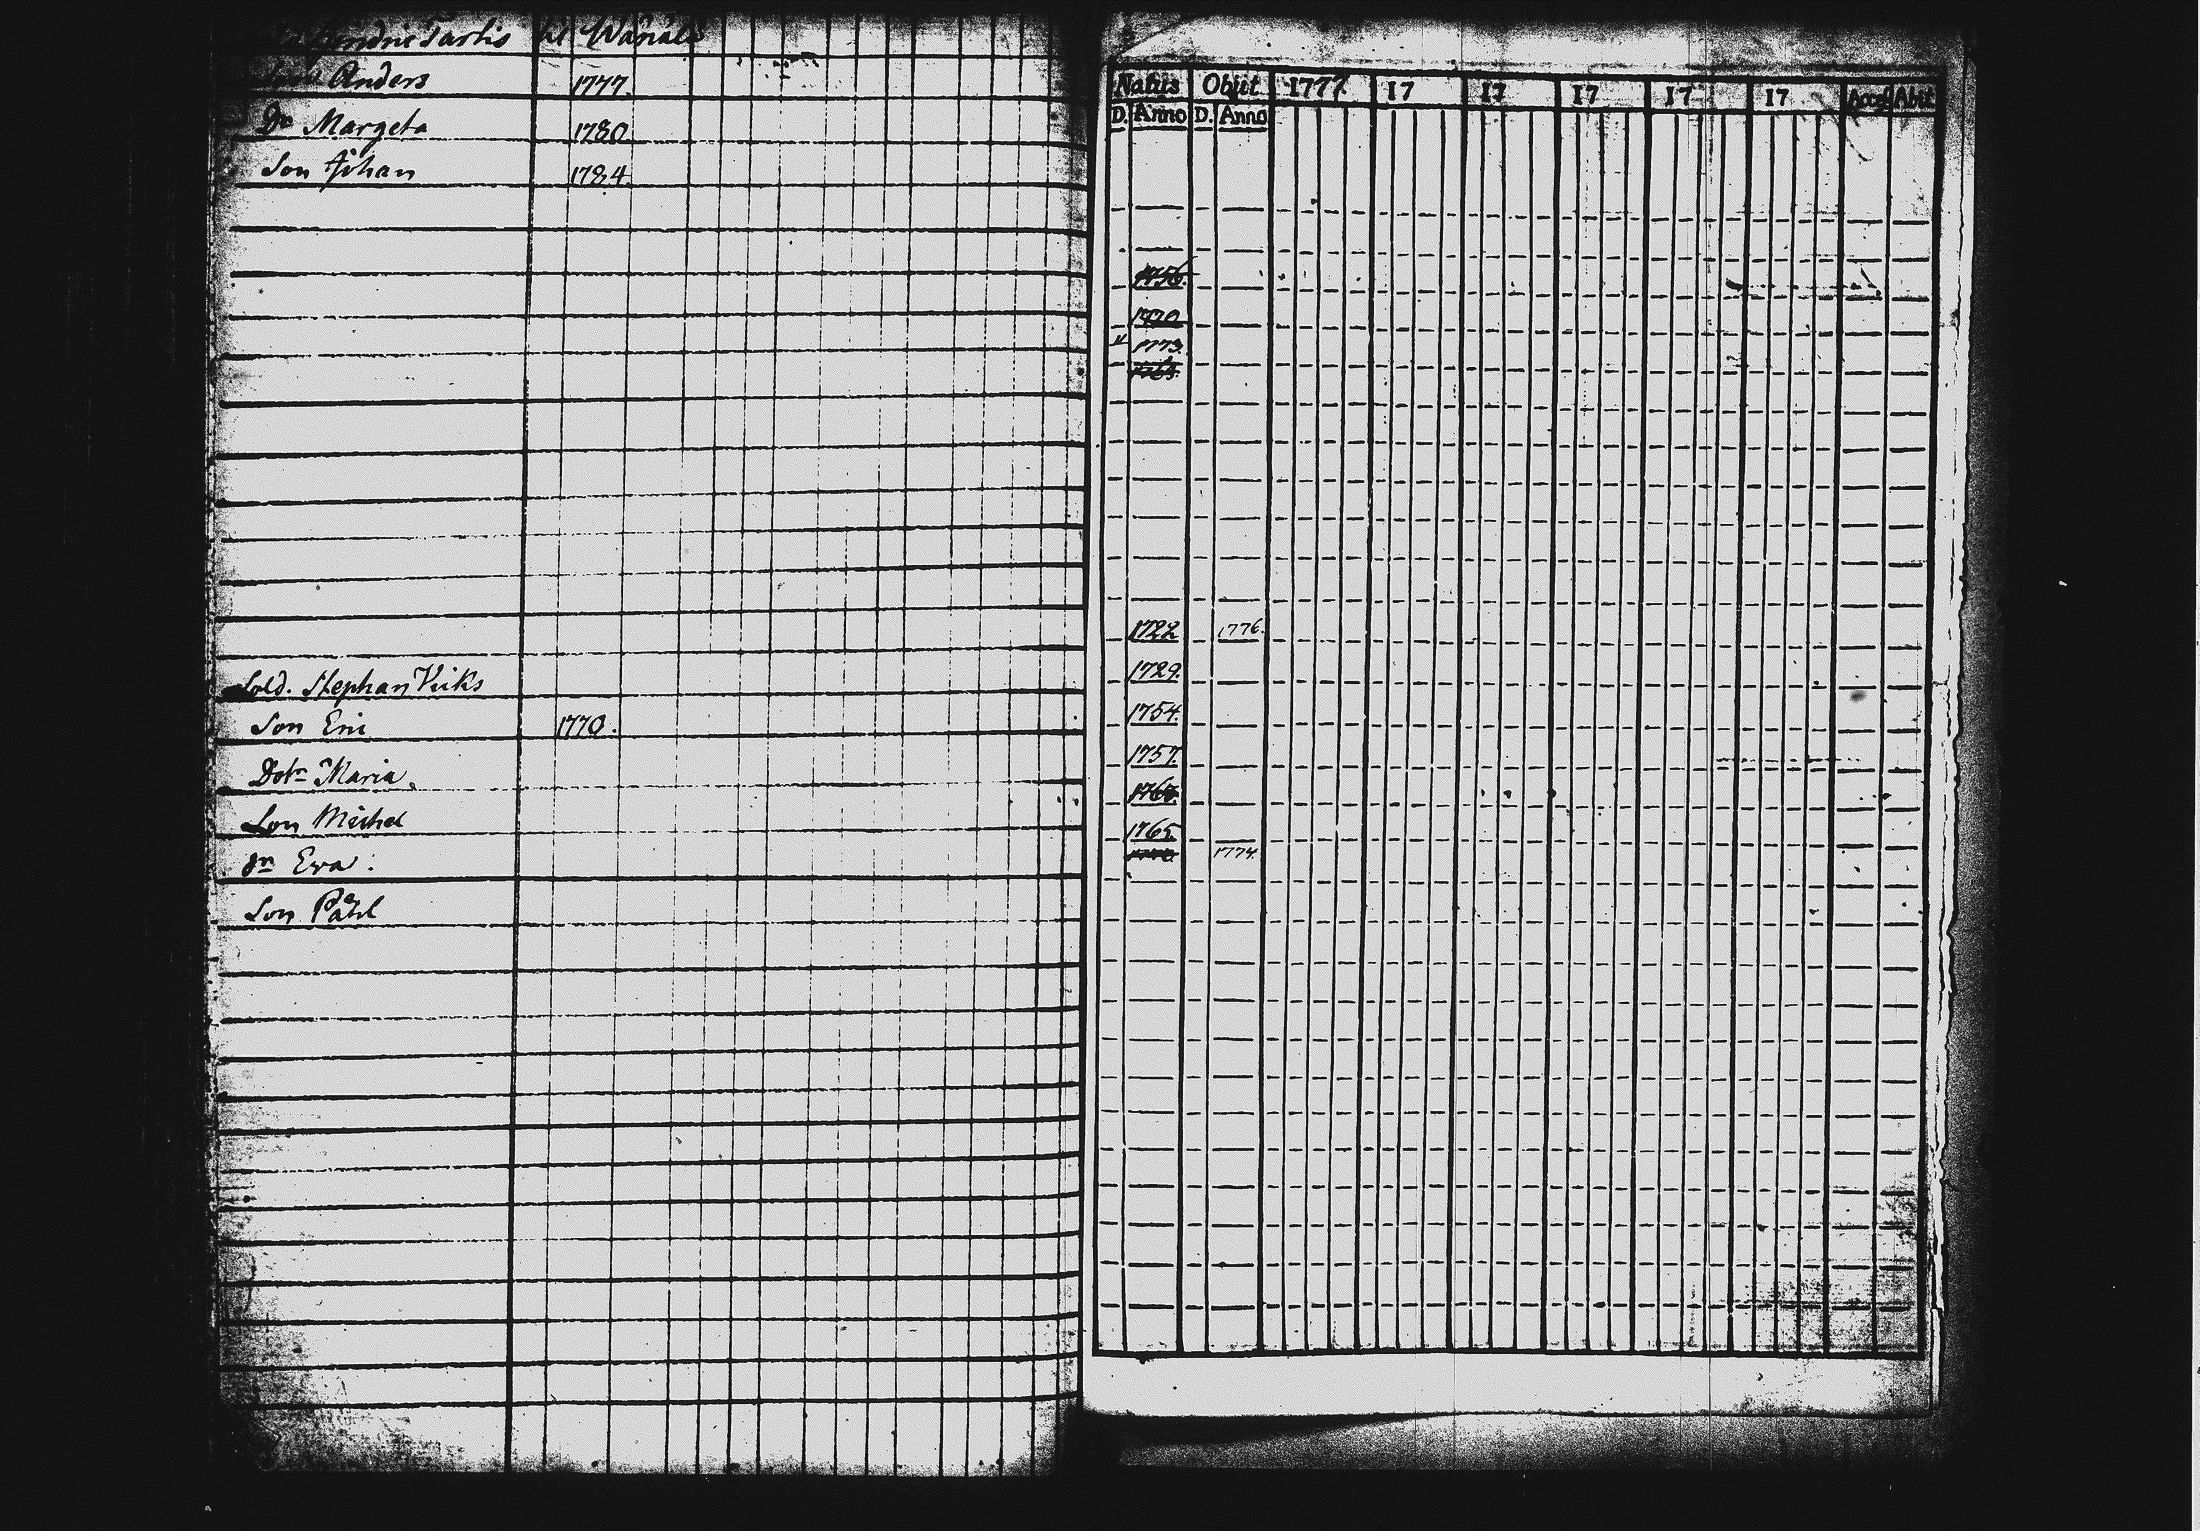 Tartis til Wänälä
Son Anders 1777.
Dr Margeta 1780
Son Johan 1784.
Sold. Stephan Viiks
Son Eric 1770.
Dotr Maria
Son Michel
Dr Eva
Son Påhl
Natus Obiit 1777 17 17 17 17 17 Acces Abit
D. Anno D. Anno
1756.
1770
1773.
1722 1776.
1729.
1754.
1757.
1765.
1774.